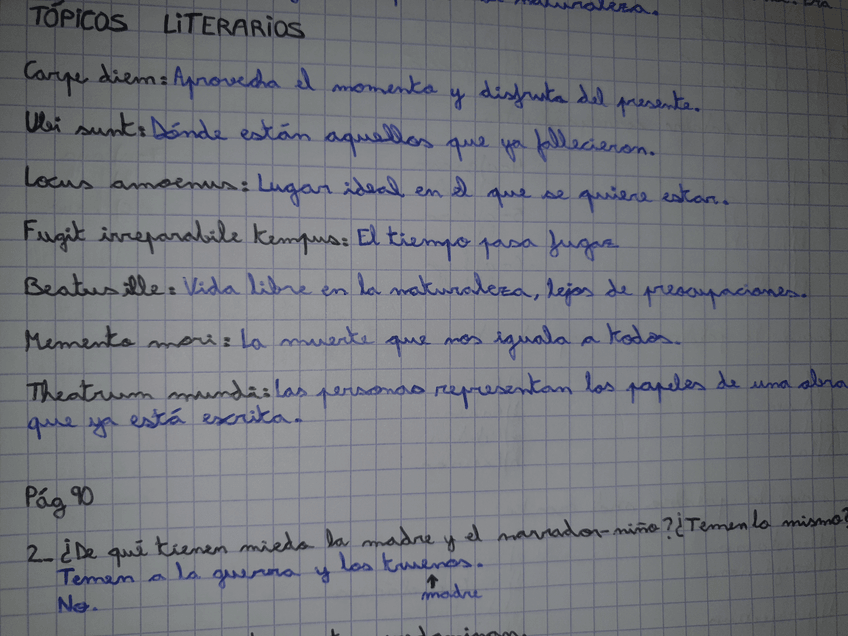 naturaleza.
TÓPICOS LITERARIOS
Carpe diem: Aprovecha el momento y disfruta del presente.
Ubi sunt: Dónde están aquellos que ya fallecieron.
Locus amoenus: Lugar ideal en el que se quiere estar.
Fugit irreparabile tempus: El tiempo pasa fugaz
Beatus ille: Vida libre en la naturaleza, lejos de preocupaciones.
Memento mori: La muerte que nos iguala a todos.
Theatrum mundi: Las personas representan los papeles de una obra
que ya está escrita.
Pág 90
2_ ¿De qué tienen miedo la madre y el narrador-niño? ¿Temen lo mismo?
Temen a la guerra y los truenos.
↑
madre
No.